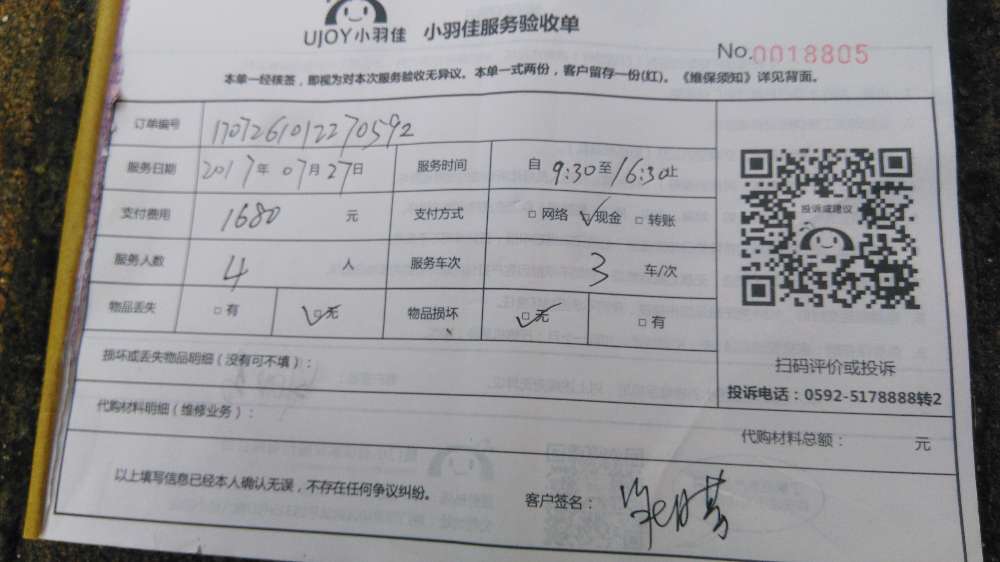 UJOY小羽佳 小羽佳服务验收单
No.0018805
本单一经核签，即视为对本次服务验收无异议。本单一式两份，客户留存一份(红)。《维保须知》详见背面。
订单编号 1707261012270592
服务日期 2017年07月27日 服务时间 自9:30至16:30止
支付费用 1680元 支付方式 □网络 □现金 □转账
服务人数 4人 服务车次 3车/次
物品丢失 □有 □无 物品损坏 □无 □有
投诉或建议
扫码评价或投诉
投诉电话：0592-5178888转2
损坏或丢失物品明细（没有可不填）：
代购材料明细（维修业务）：
代购材料总额： 元
以上填写信息已经本人确认无误，不存在任何争议纠纷。
客户签名：